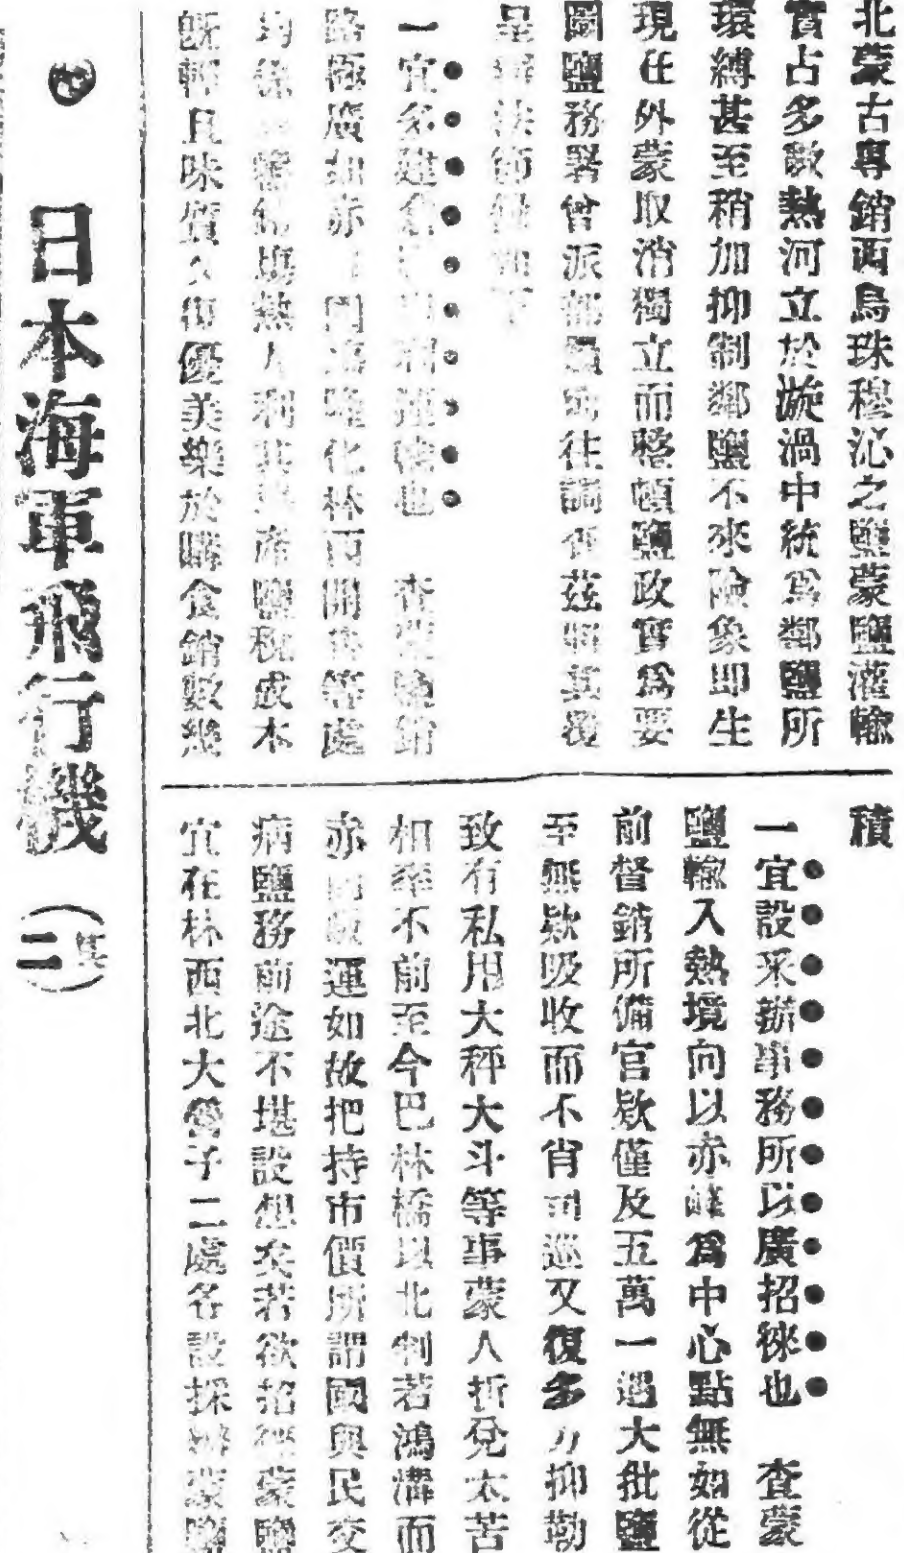 北蒙古專銷西烏珠穆沁之鹽蒙鹽灌輸
實占多數熱河立於漩渦中統爲鄰鹽所
環縛甚至稍加抑制鄰鹽不來險象即生
現任外蒙取消獨立而整頓鹽政實爲要
圖鹽務署曾派部員馳往調查茲將其覆
呈辦法節錄如下
一宜多建倉以利運輸也　查蒙鹽銷
路極廣如赤圍場隆化林西開魯等處
均係蒙鹽銷場熱人利其產鹽稅成本
旣輕且味質又復優美樂於購食銷數幾
積
一宜設采辦事務所以廣招徠也　查蒙
鹽輸入熱境向以赤峰爲中心點無如從
前督銷所備官欵僅及五萬一遇大批鹽
至無欵吸收而不肖司巡又復多方抑勒
致有私用大秤大斗等事蒙人折兌太苦
相率不前至今巴林橋以北判若鴻溝而
赤販運如故把持市價所謂國與民交
病鹽務前途不堪設想矣若欲招徠蒙鹽
宜在林西北大營子二處各設採辦蒙鹽
日本海軍飛行機（其二）